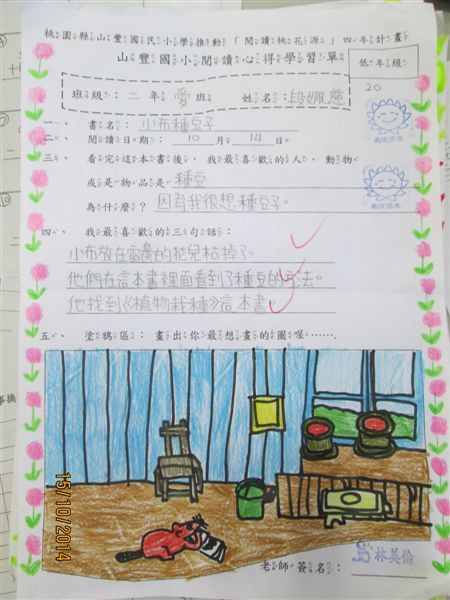 桃園縣山豐國民小學推動「閱讀桃花源」四年計畫
山豐國小閱讀心得學習單
低年級
班級：二年愛班 姓名：段姵慈
20
一、書名：小布種豆子
二、閱讀日期：10月14日
三、看完這本書後，我最喜歡的人、動物
或是物品是種豆
為什麼？因為我很想種豆子。
四、我最喜歡的三句話：
小布放在窗邊的花兒枯掉了。
他們在這本書裡面看到了種豆的方法。
他找到《植物栽種》這本書。
五、塗鴉區：畫出你最想畫的圖喔……
老師簽名：林美倫
15/10/2014